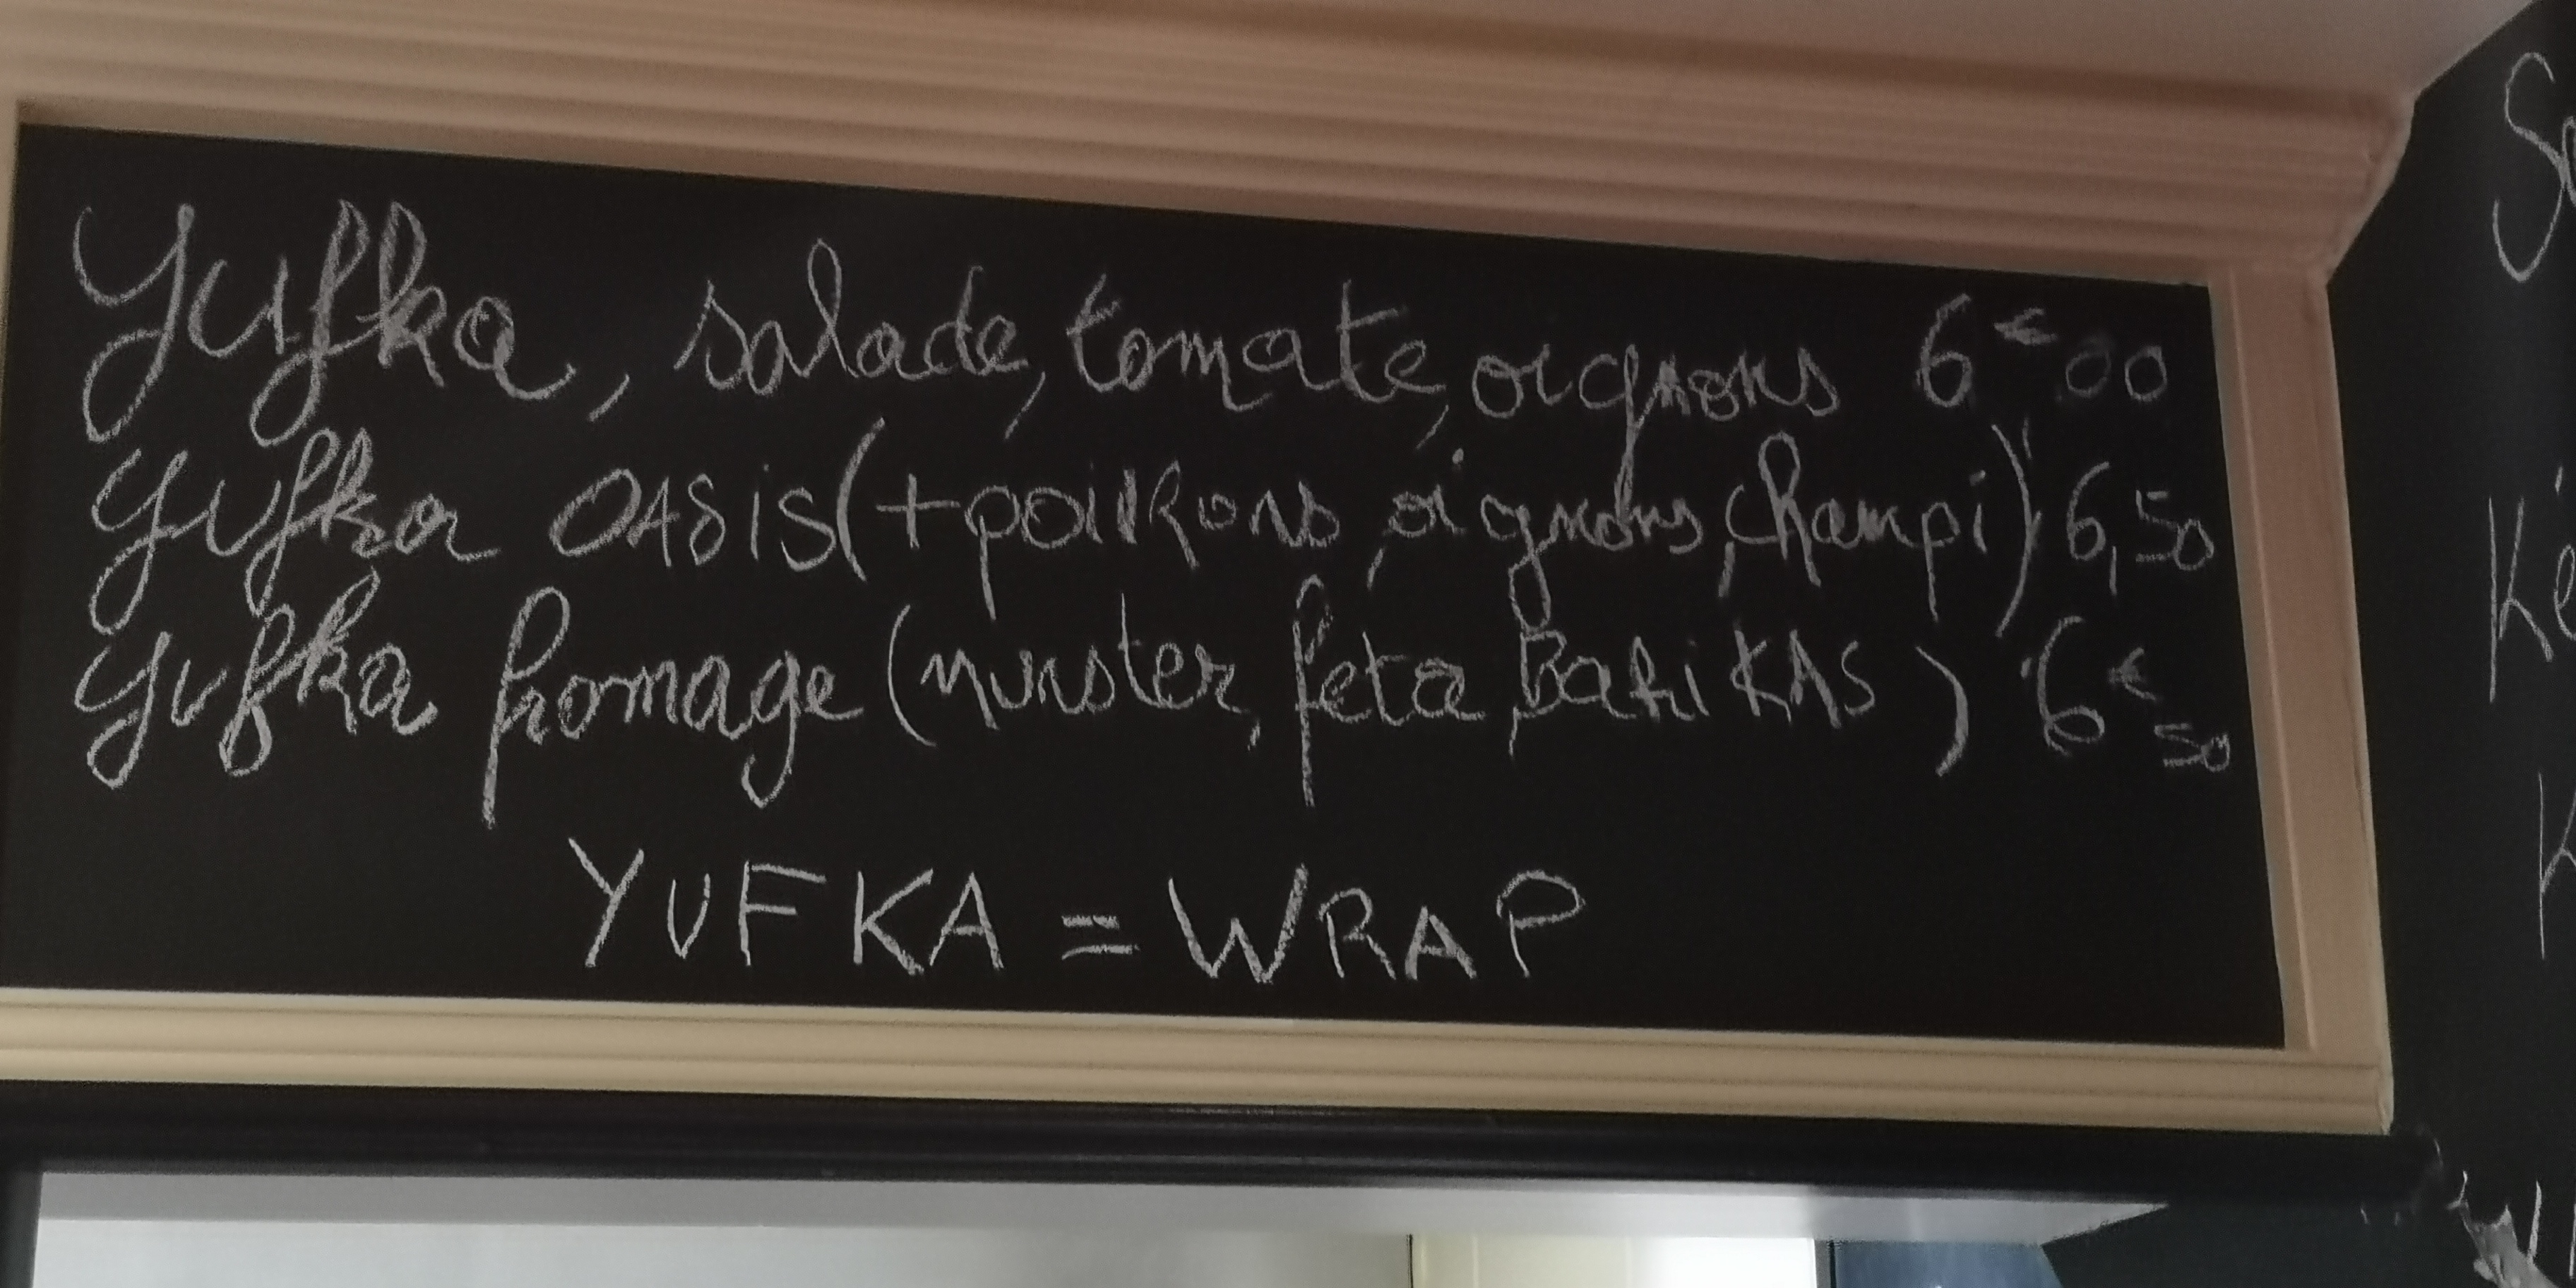 Yufka, salade, tomate, oignons 6€00
Yufka OASiS (+poivrons, oignons, champi) 6,50
Yufka fromage (munster, feta, BatiKAS) 6€50
YUFKA = WRAP